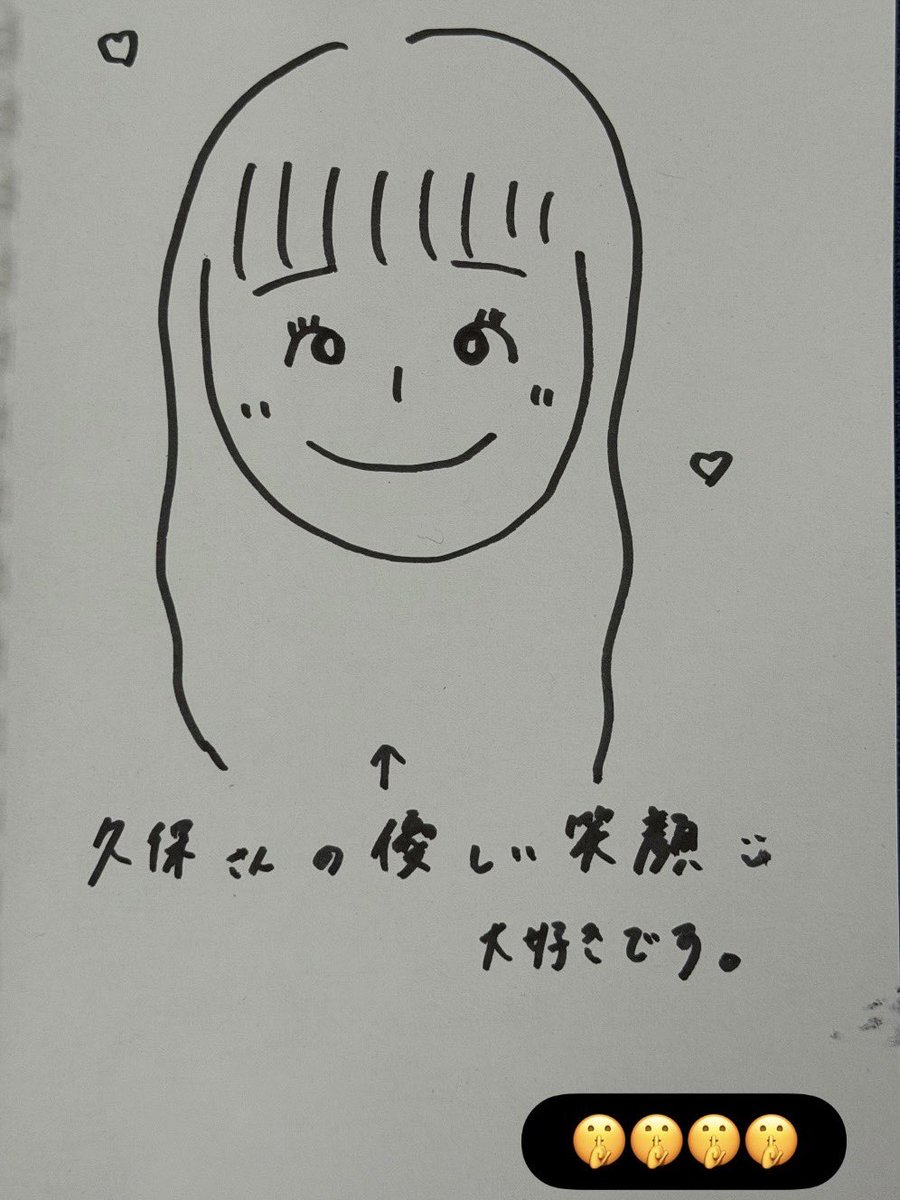 ↑
久保さんの優しい笑顔
大好きです。